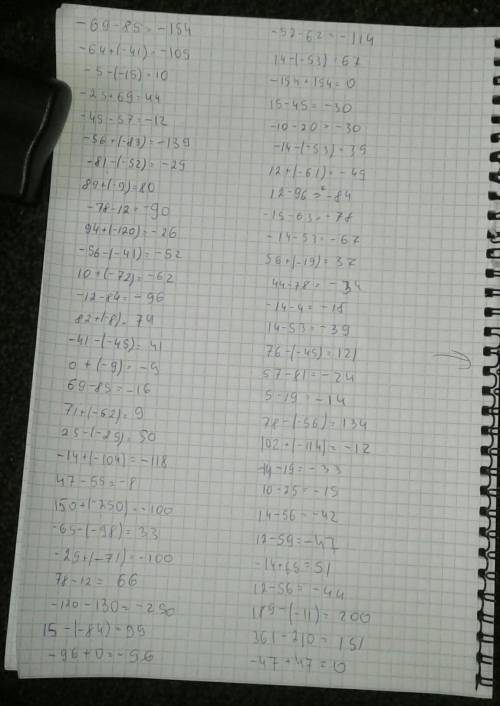 -69-85=-154
-64+(-41)=-105
-5-(-15)=10
-25+69=44
-45-57=-12
-56+(-83)=-139
-81-(-52)=-29
89+(-9)=80
-78-12=-90
94+(-120)=-26
-56-(-41)=-52
10+(-72)=-62
-12-84=-96
82+(-8)=74
-41-(-45)=41
0+(-9)=-9
69-85=-16
71+(-62)=9
25-(-25)=50
-14+(-104)=-118
47-55=-8
150+(-250)=-100
-65-(-98)=33
-29+(-71)=-100
78-12=66
-120-130=-250
15-(-84)=99
-96+0=-96
-52-62=-114
14-(-53)=67
-154+154=0
15-45=-30
-10-20=-30
-14-(-53)=39
12+(-61)=-49
12-96=-84
-15-63=-78
-14-53=-67
56+(-19)=37
44-78=-34
-14-4=-18
14-53=-39
76-(-45)=121
57-81=-24
5-19=-14
78-(-56)=134
102+(-114)=-12
-14-19=-33
10-25=-15
14-56=-42
12-59=-47
-14+65=51
12-56=-44
189-(-11)=200
361-210=151
-47+47=0